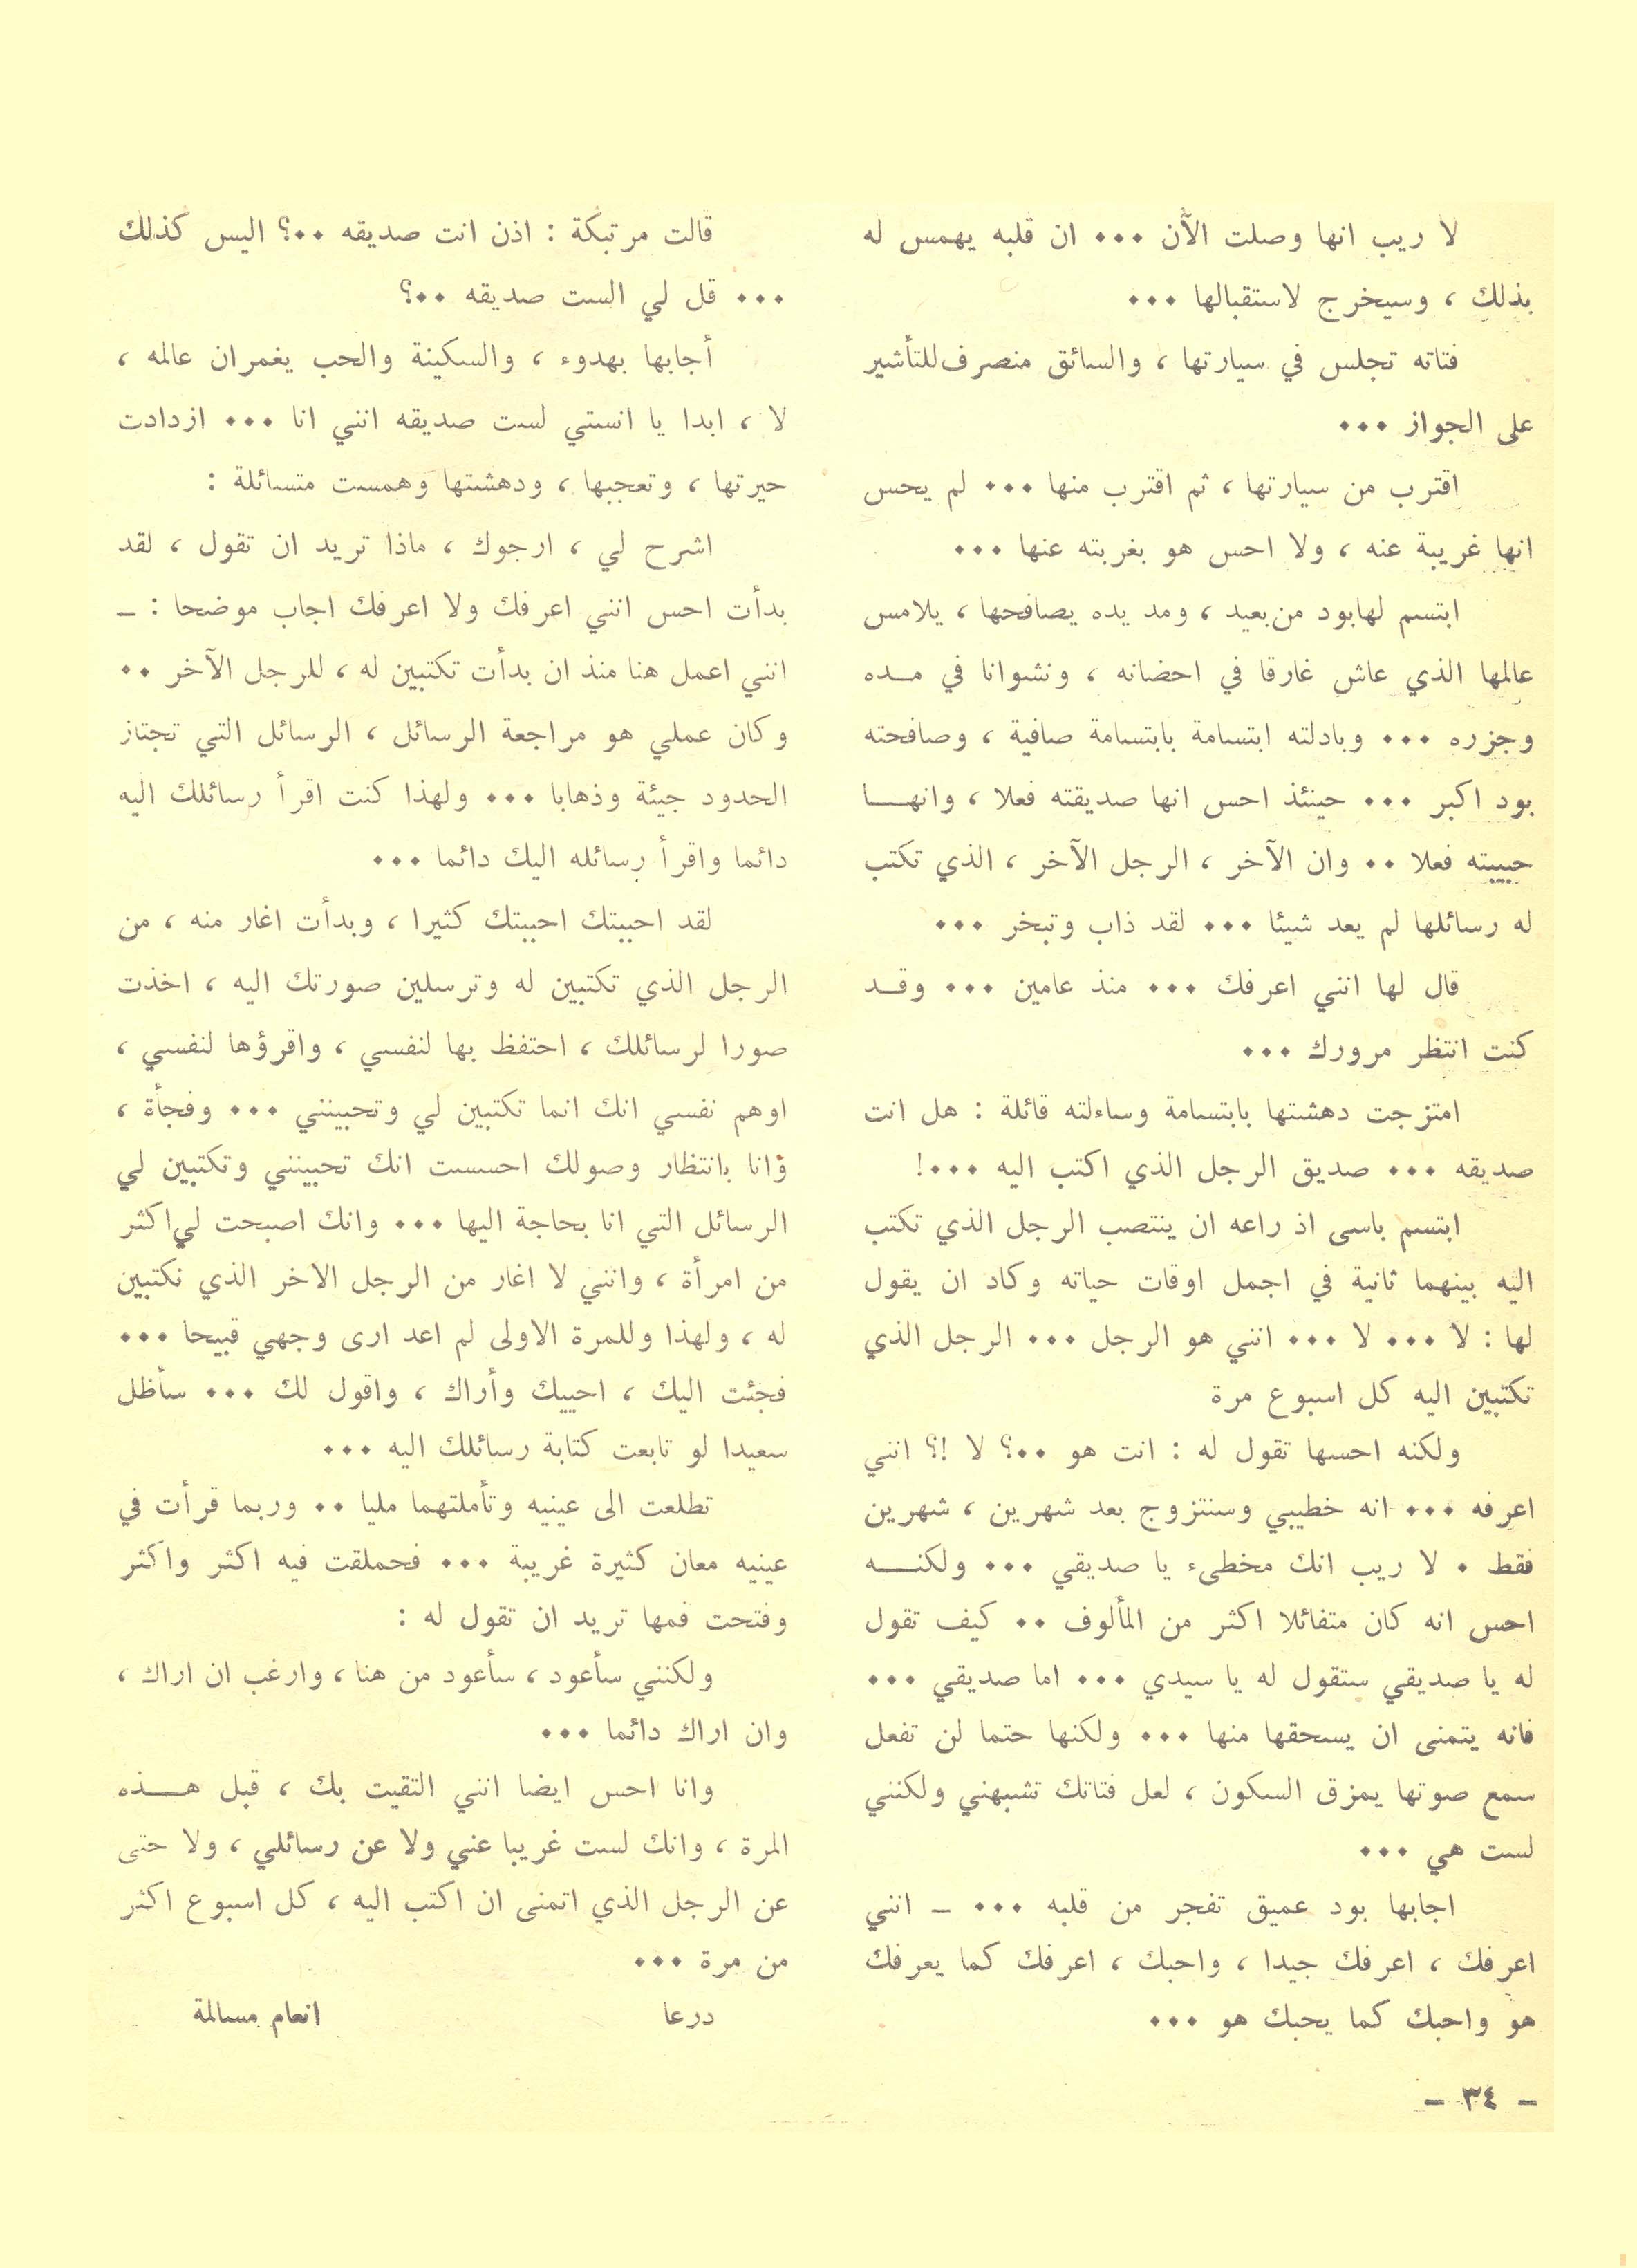 لا ريب انها وصلت الآن ••• ان قلبه يهمس له
بذلك ، وسيخرج لاستقبالها •••
فتاته تجلس في سيارتها ، والسائق منصرف للتأشير
على الجواز •••
اقترب من سيارتها ، ثم اقترب منها ••• لم يحس
انها غريبة عنه ، ولا احس هو بغربته عنها •••
ابتسم لها بود من بعيد ، ومد يده يصافحها ، يلامس
عالمها الذي عاش غارقا في احضانه ، ونشوانا في مــده
وجزره ••• وبادلته ابتسامة بابتسامة صافية ، وصافحته
بود اكبر ••• حينئذ احس انها صديقته فعلا ، وانهـــا
حبيبته فعلا •• وان الآخر ، الرجل الآخر ، الذي تكتب
له رسائلها لم يعد شيئا ••• لقد ذاب وتبخر •••
قال لها انني اعرفك ••• منذ عامين ••• وقــد
كنت انتظر مرورك •••
امتزجت دهشتها بابتسامة وساءلته قائلة : هل انت
صديقه ••• صديق الرجل الذي اكتب اليه •••!
ابتسم باسى اذ راعه ان ينتصب الرجل الذي تكتب
اليه بينهما ثانية في اجمل اوقات حياته وكاد ان يقول
لها : لا ••• لا ••• انني هو الرجل ••• الرجل الذي
تكتبين اليه كل اسبوع مرة
ولكنه احسها تقول له : انت هو ••؟ لا !؟ انني
اعرفه ••• انه خطيبي وسنتزوج بعد شهرين ، شهرين
فقط • لا ريب انك مخطىء يا صديقي ••• ولكنـــه
احس انه كان متفائلا اكثر من المألوف •• كيف تقول
له يا صديقي ستقول له يا سيدي ••• اما صديقي •••
فانه يتمنى ان يسحقها منها ••• ولكنها حتما لن تفعل
سمع صوتها يمزق السكون ، لعل فتاتك تشبهني ولكنني
لست هي •••
اجابها بود عميق تفجر من قلبه ••• ـ انني
اعرفك ، اعرفك جيدا ، واحبك ، اعرفك كما يعرفك
هو واحبك كما يحبك هو •••
قالت مرتبكة : اذن انت صديقه ••؟ اليس كذلك
••• قل لي الست صديقه ••؟
أجابها بهدوء ، والسكينة والحب يغمران عالمه ،
لا ، ابدا يا انستي لست صديقه انني انا ••• ازدادت
حيرتها ، وتعجبها ، ودهشتها وهمست متسائلة :
اشرح لي ، ارجوك ، ماذا تريد ان تقول ، لقد
بدأت احس انني اعرفك ولا اعرفك اجاب موضحا : ـ
انني اعمل هنا منذ ان بدأت تكتبين له ، للرجل الآخر ••
وكان عملي هو مراجعة الرسائل ، الرسائل التي تجتاز
الحدود جيئة وذهابا ••• ولهذا كنت اقرأ رسائلك اليه
دائما واقرأ رسائله اليك دائما •••
لقد احببتك احببتك كثيرا ، وبدأت اغار منه ، من
الرجل الذي تكتبين له وترسلين صورتك اليه ، اخذت
صورا لرسائلك ، احتفظ بها لنفسي ، واقرؤها لنفسي ،
اوهم نفسي انك انما تكتبين لي وتحبينني ••• وفجأة ،
وانا بانتظار وصولك احسست انك تحبينني وتكتبين لي
الرسائل التي انا بحاجة اليها ••• وانك اصبحت لي اكثر
من امرأة ، وانني لا اغار من الرجل الاخر الذي تكتبين
له ، ولهذا وللمرة الاولى لم اعد ارى وجهي قبيحا •••
فجئت اليك ، احييك وأراك ، واقول لك ••• سأظل
سعيدا لو تابعت كتابة رسائلك اليه •••
تطلعت الى عينيه وتأملتهما مليا •• وربما قرأت في
عينيه معان كثيرة غريبة ••• فحملقت فيه اكثر واكثر
وفتحت فمها تريد ان تقول له :
ولكنني سأعود ، سأعود من هنا ، وارغب ان اراك ،
وان اراك دائما •••
وانا احس ايضا انني التقيت بك ، قبل هـــذه
المرة ، وانك لست غريبا عني ولا عن رسائلي ، ولا حتى
عن الرجل الذي اتمنى ان اكتب اليه ، كل اسبوع اكثر
من مرة •••
درعا انعام مسالمة
ـ ٣٤ ـ